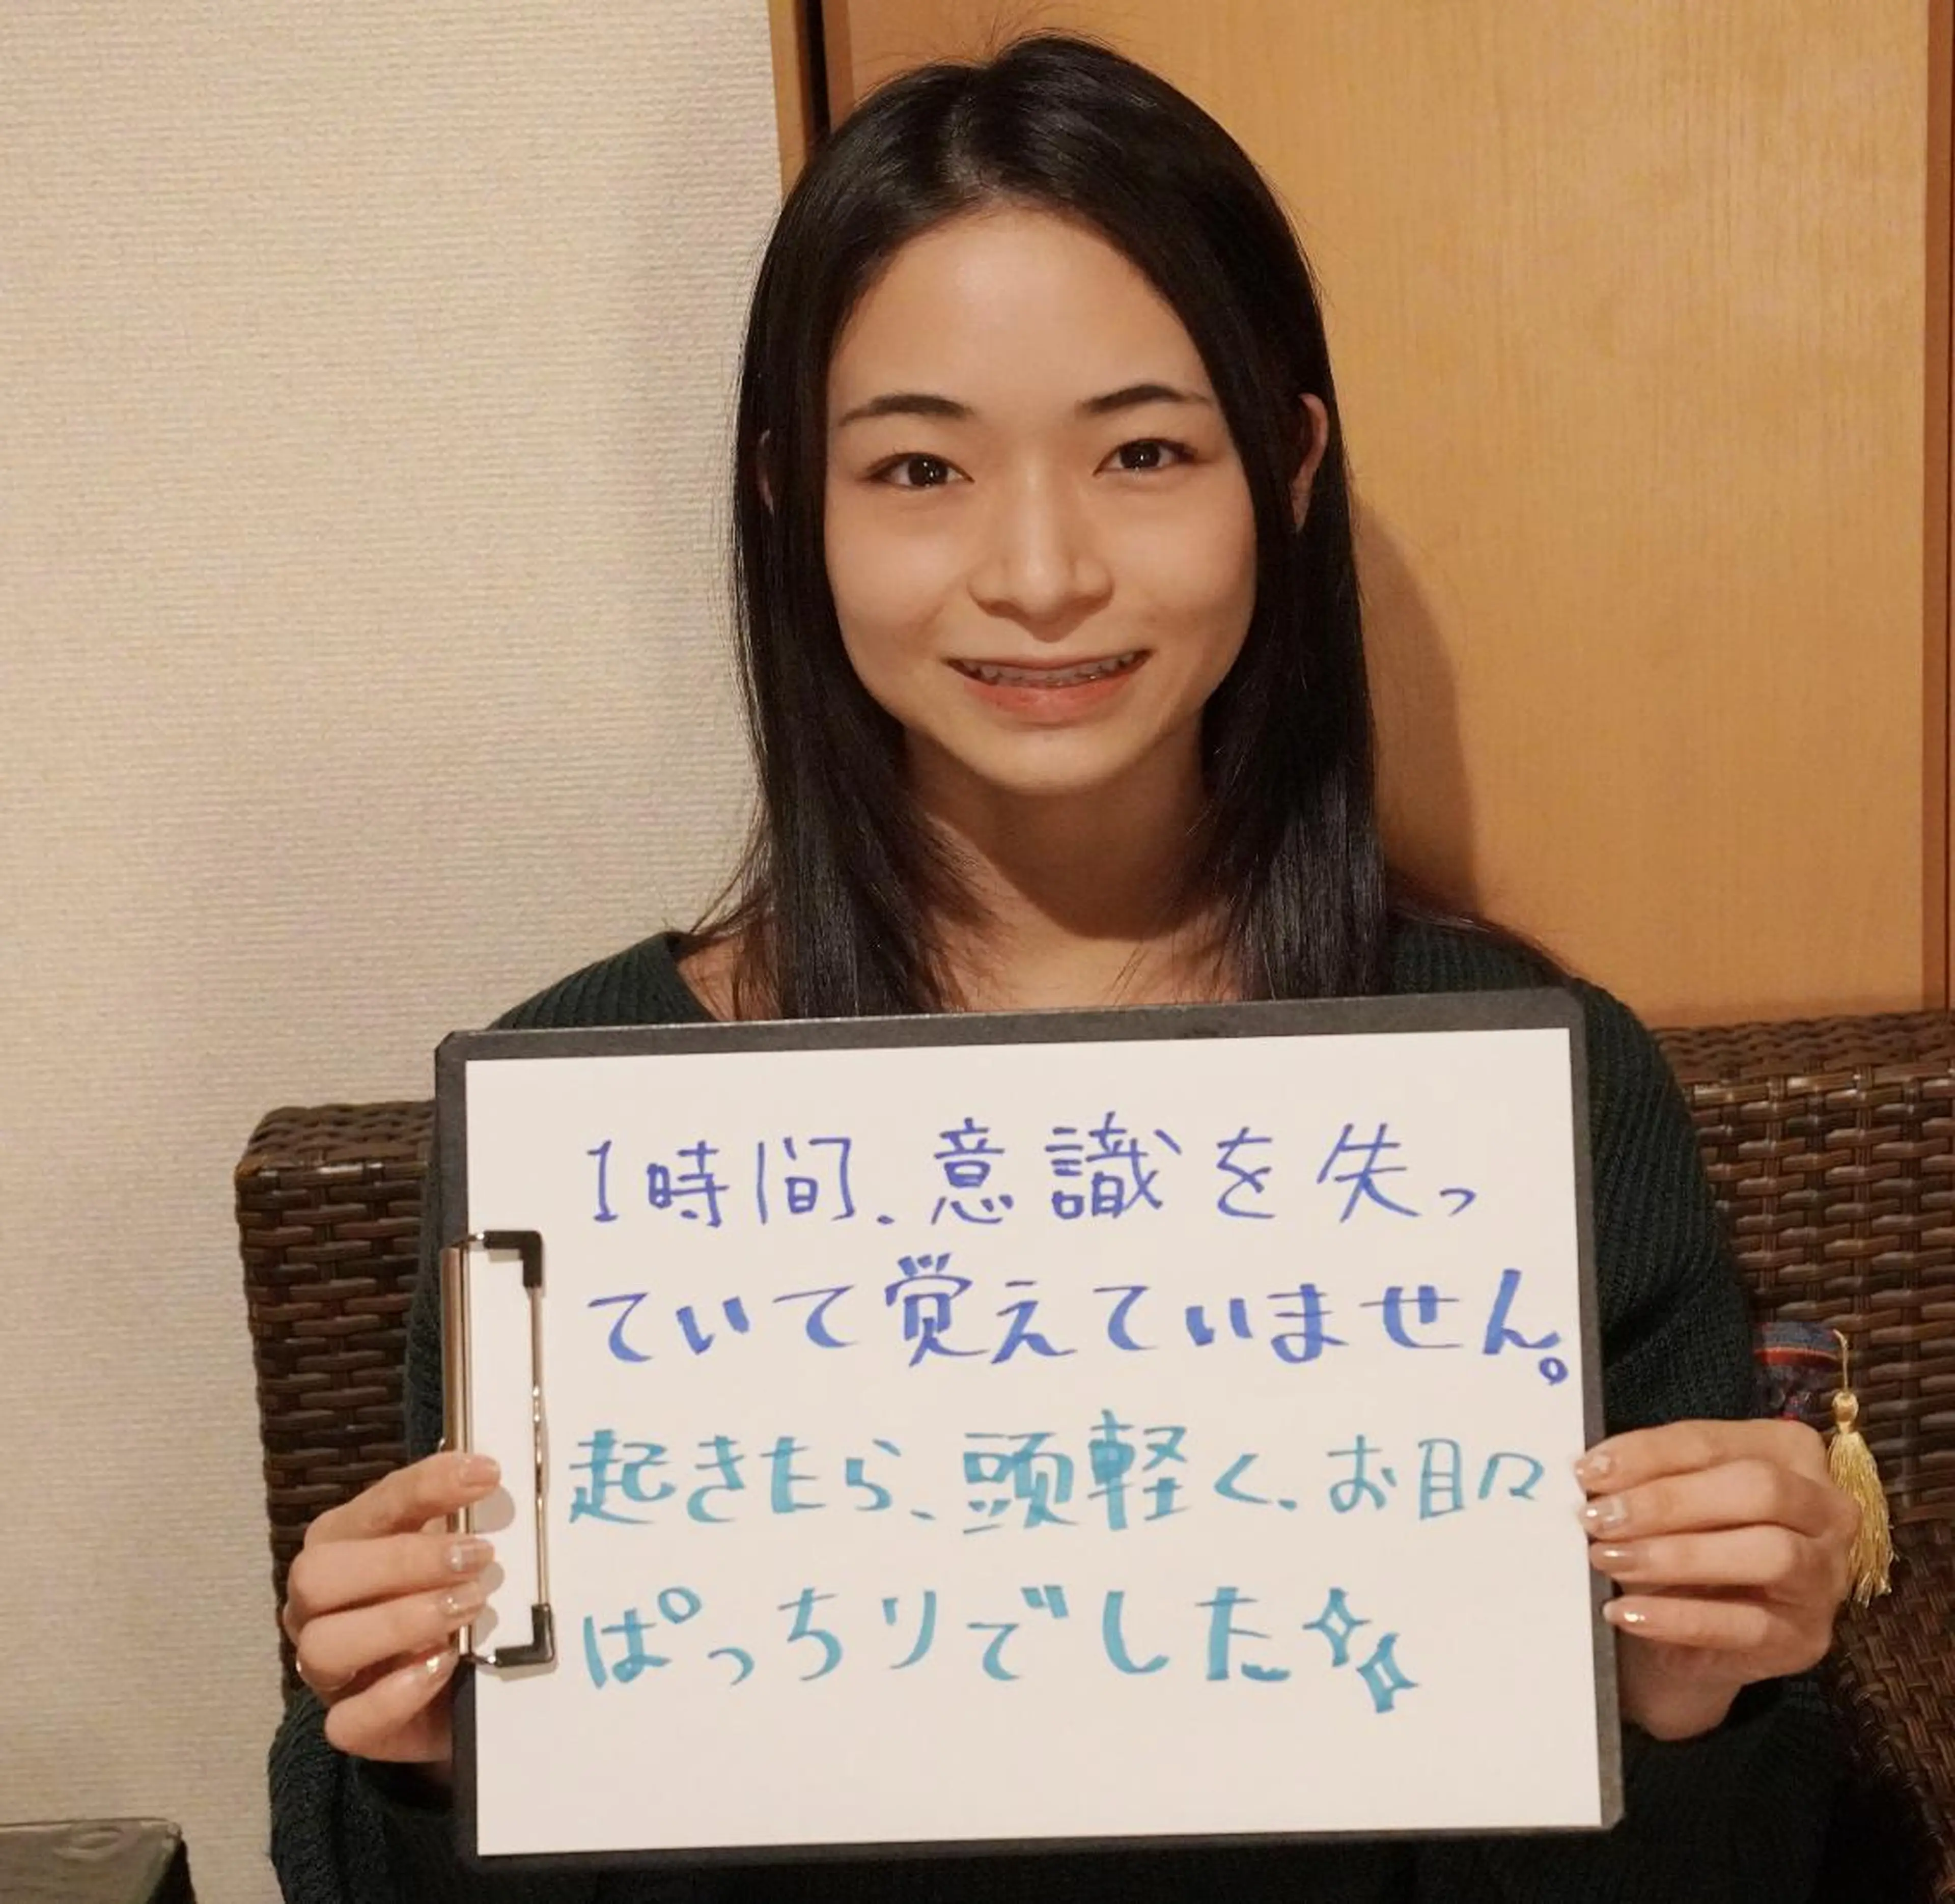 1時間、意識を失っ
ていて覚えていません。
起きたら、頭軽く、お目々
ぱっちりでした